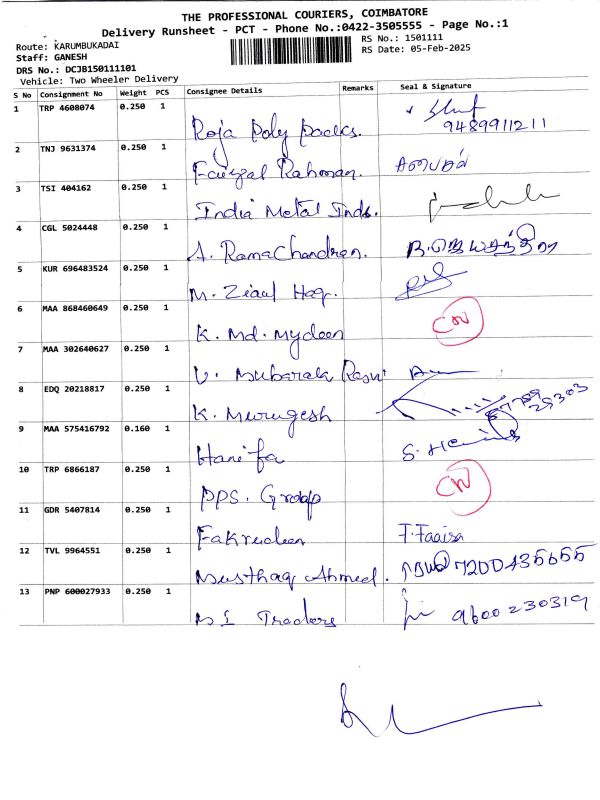 THE PROFESSIONAL COURIERS, COIMBATORE
Delivery Runsheet - PCT - Phone No.:0422-3505555 - Page No.:1
Route: KARUMBUKADAI
RS No.: 1501111
Staff: GANESH
RS Date: 05-Feb-2025
DRS No.: DCJB150111101
Vehicle: Two Wheeler Delivery
S No Consignment No Weight PCS Consignee Details Remarks Seal & Signature
1 TRP 4608074 0.250 1
Roja Poly Packs. 9489911211
2 TNJ 9631374 0.250 1
Faiyzal Rahman.
3 TSI 404162 0.250 1
India Metal Inds.
4 CGL 5024448 0.250 1
A. Ramachandren.
5 KUR 696483524 0.250 1
M. Ziaul Haq.
6 MAA 868460649 0.250 1
K. Md. Mydeen CN
7 MAA 302640627 0.250 1
U. Mubarak
8 EDQ 20218817 0.250 1
K. Murugesh
9 MAA 575416792 0.160 1
Hanifa
10 TRP 6866187 0.250 1
PPS. Group CN
11 GDR 5407814 0.250 1
Fakrudeen F.Faaisa
12 TVL 9964551 0.250 1
Musthaq Ahmed. 7200435655
13 PNP 600027933 0.250 1
Traders 9600230319